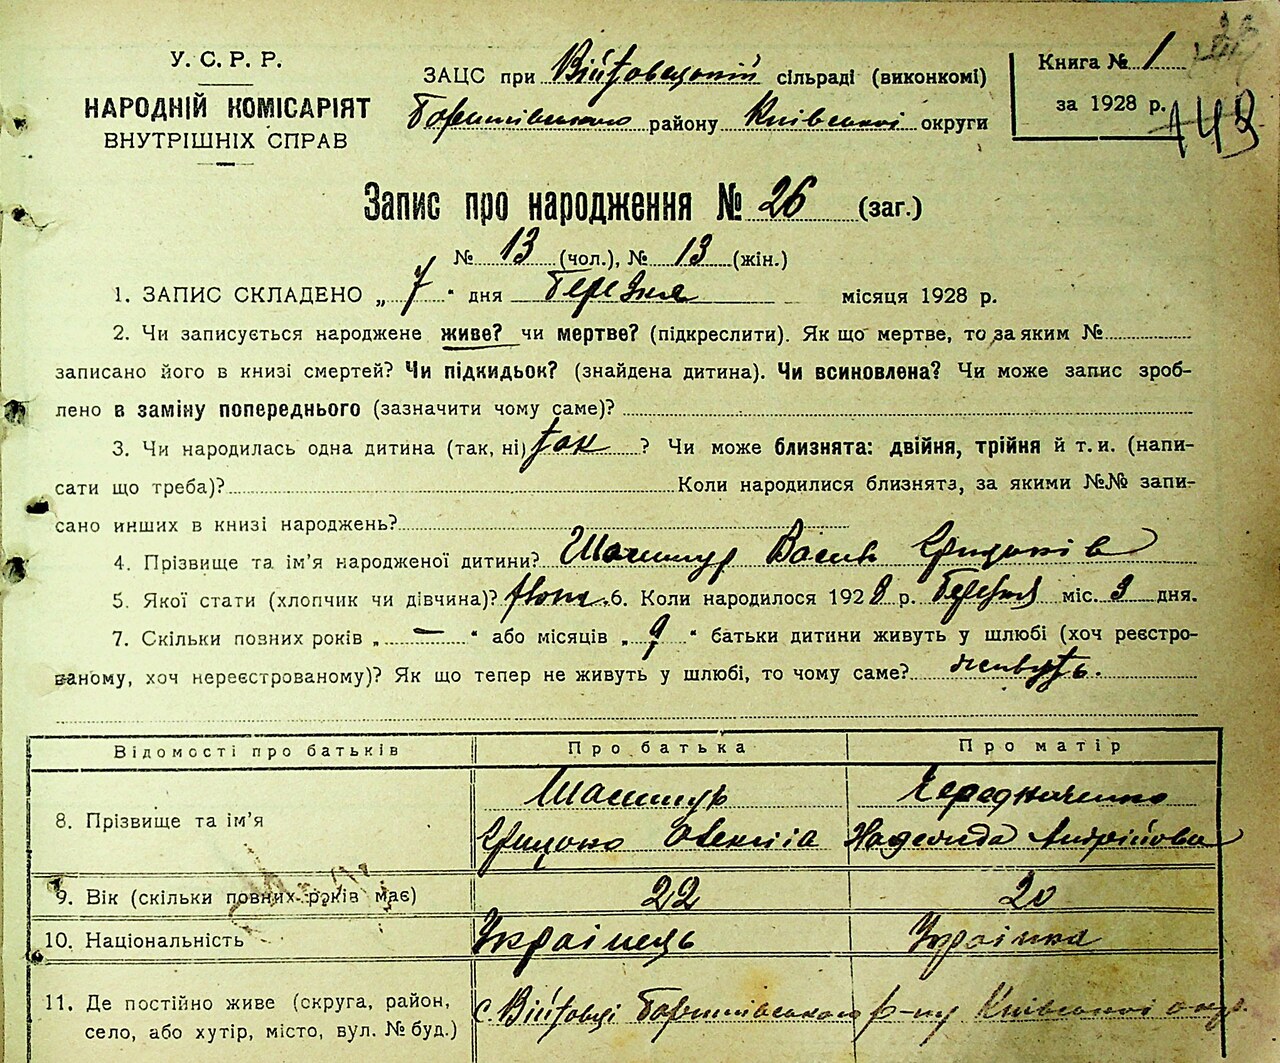 У. С. Р. Р.
НАРОДНІЙ КОМІСАРІЯТ
ВНУТРІШНІХ СПРАВ
ЗАЦС при Війтовецькій сільраді (виконкомі)
Баришівського району Київської округи
Книга № 1
за 1928 р.
148
Запис про народження № 26 (заг.)
№ 13 (чол.), № 13 (жін.)
1. ЗАПИС СКЛАДЕНО „ 7 “ дня Березня місяця 1928 р.
2. Чи записується народжене живе? чи мертве? (підкреслити). Як що мертве, то за яким №
записано його в книзі смертей? Чи підкидьок? (знайдена дитина). Чи всиновлена? Чи може запис зроб-
лено в заміну попереднього (зазначити чому саме)?
3. Чи народилась одна дитина (так, ні) так ? Чи може близнята: двійня, трійня й т. и. (напи-
сати що треба)? Коли народилися близнята, за якими №№ запи-
сано инших в книзі народжень?
4. Прізвище та ім'я народженої дитини? Василь Грицьків
5. Якої стати (хлопчик чи дівчина)? 6. Коли народилося 1928 р. Березня міс. 3 дня.
7. Скільки повних років „ — “ або місяців „ 9 “ батьки дитини живуть у шлюбі (хоч реєстро-
ваному, хоч нереєстрованому)? Як що тепер не живуть у шлюбі, то чому саме? живуть.
Відомості про батьків Про батька Про матір
8. Прізвище та ім'я
Чередниченко
Грицько Олексіїв Надежда Андрійовна
9. Вік (скільки повних років має) 22 20
10. Національність Українець Українка
11. Де постійно живе (округа, район,
село, або хутір, місто, вул. № буд.)
с. Війтовці Баришівського р-ну Київської округ.